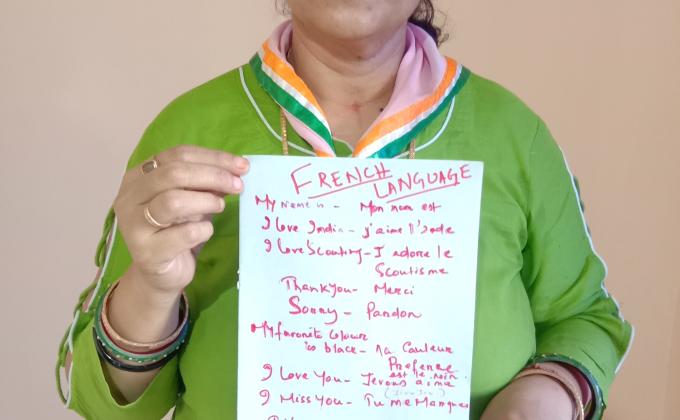 FRENCH LANGUAGE
My name is - Mon nom est
I love India - J'aime l'Inde
I love Scouting - J adore le
Scoutisme
Thank you - Merci
Sorry - Pardon
My favorite colour
is black - Ma Couleur
Preferee
est le noir.
I Love You - Je vous aime
I Miss You - Tu me Manques